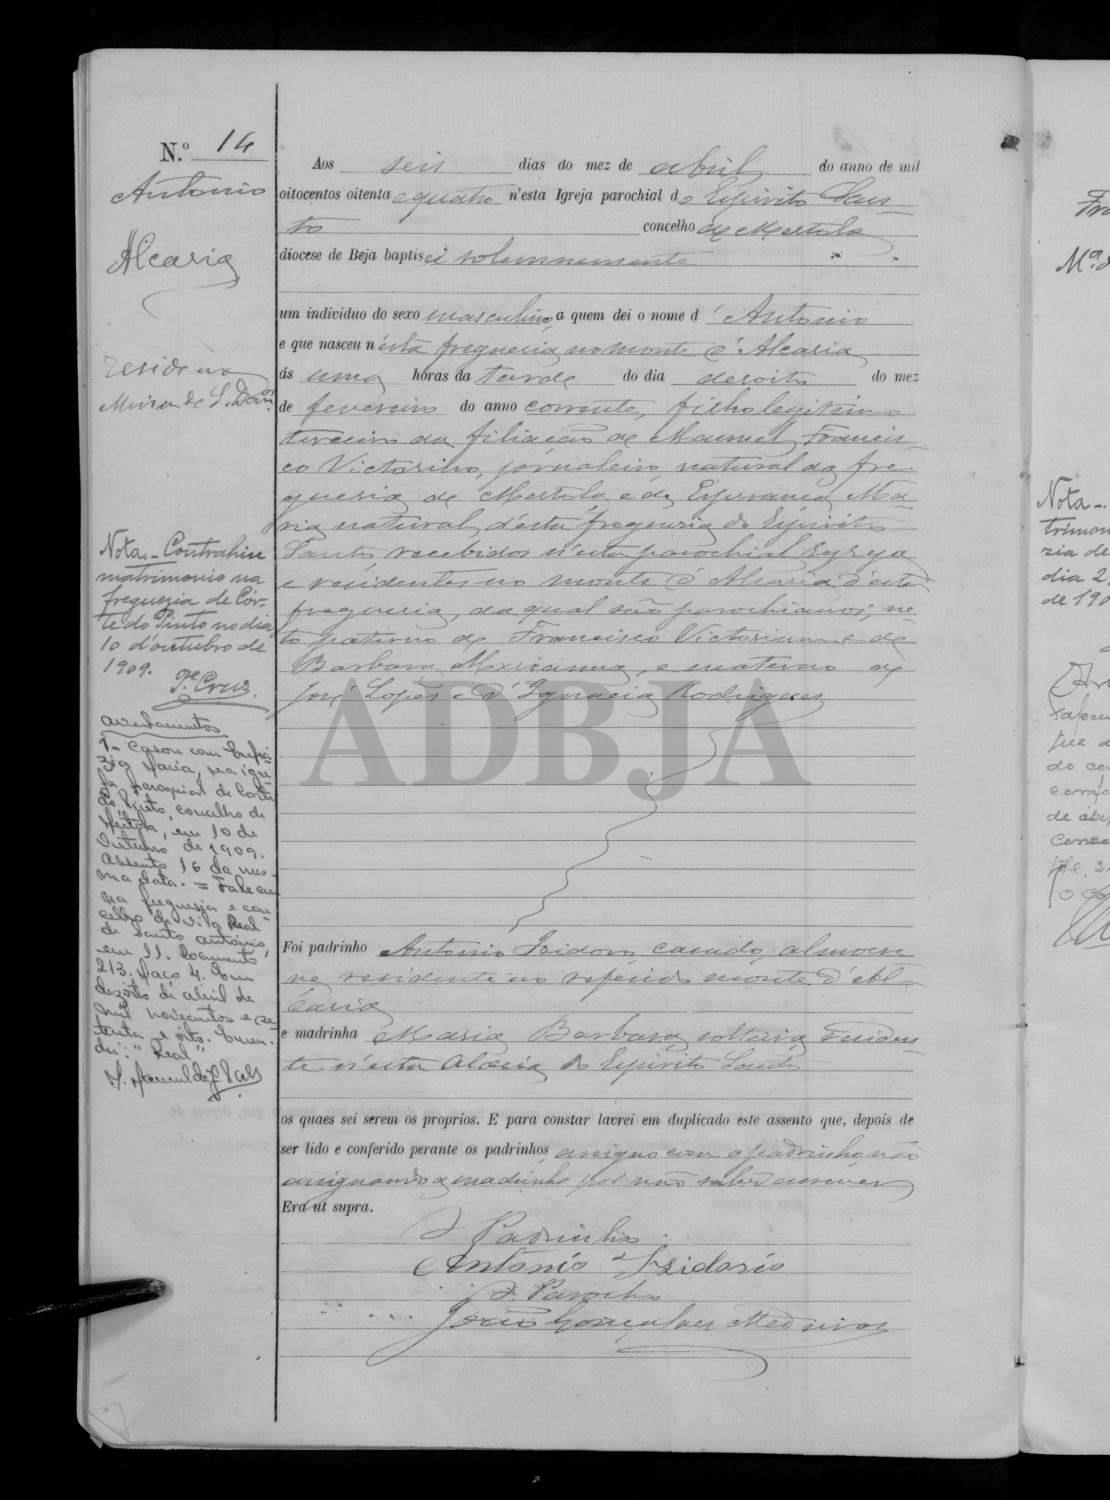 N.º 14
Antonio
Alcaria
reside na
Mina de S. Domos
Nota - Contrahiu
matrimonio na
freguezia de Côr-
te do Pinto no dia
10 d'outubro de
1909.
Pe Cruz.
averbamentos
1- Casou com
Maria, na igre-
ja paroquial de Corte
do Pinto, concelho de
Mértola, em 10 de
Outubro de 1909.
Assento 16 da mes-
ma data. = Faleceu
na freguesia e con-
celho de Vila Real
de Santo António,
em 11. Documento
213. Maço 4. Em
dezoito de abril de
mil novecentos e se-
tenta e oito. Emen-
dei: "Real"
Aos seis dias do mez de abril do anno de mil
oitocentos oitenta e quatro n'esta Igreja parochial do Espirito San-
to concelho de Mertola
diocese de Beja baptisei solemnemente
um individuo do sexo masculino, a quem dei o nome d' Antonio
e que nasceu n'esta freguezia no monte d'Alcaria
ás uma horas da tarde do dia desoito do mez
de fevereiro do anno corrente, filho legitimo
terceiro da filiação de Manuel Francis-
co Victorino, jornaleiro, natural da fre-
guezia de Mertola, e de Esperança Ma-
ria natural, d'esta freguezia do Espirito
Santo recebidos n'esta parochial Egreja
e residentes no monte d'Alcaria d'esta
freguezia, da qual são parochianos; ne-
to paterno de Francisco Victorino e de
Barbara Marianna, e materno de
José Lopes e d'Ignacia Rodrigues
ADBJA
Foi padrinho Antonio Izidoro, casado, almocre-
ve residente no referido monte d'Al-
caria
e madrinha Maria Barbara solteira residen-
te n'esta Aldeia do Espirito Santo
os quaes sei serem os proprios. E para constar lavrei em duplicado este assento que, depois de
ser lido e conferido perante os padrinhos, assigno com o padrinho, não
assignando a madrinha por não saber escrever
Era ut supra.
O Padrinho
Antonio Izidorio
O Parocho
João Gonçalves Medeiros
Nota -
trimon
zia de
dia 2
de 190